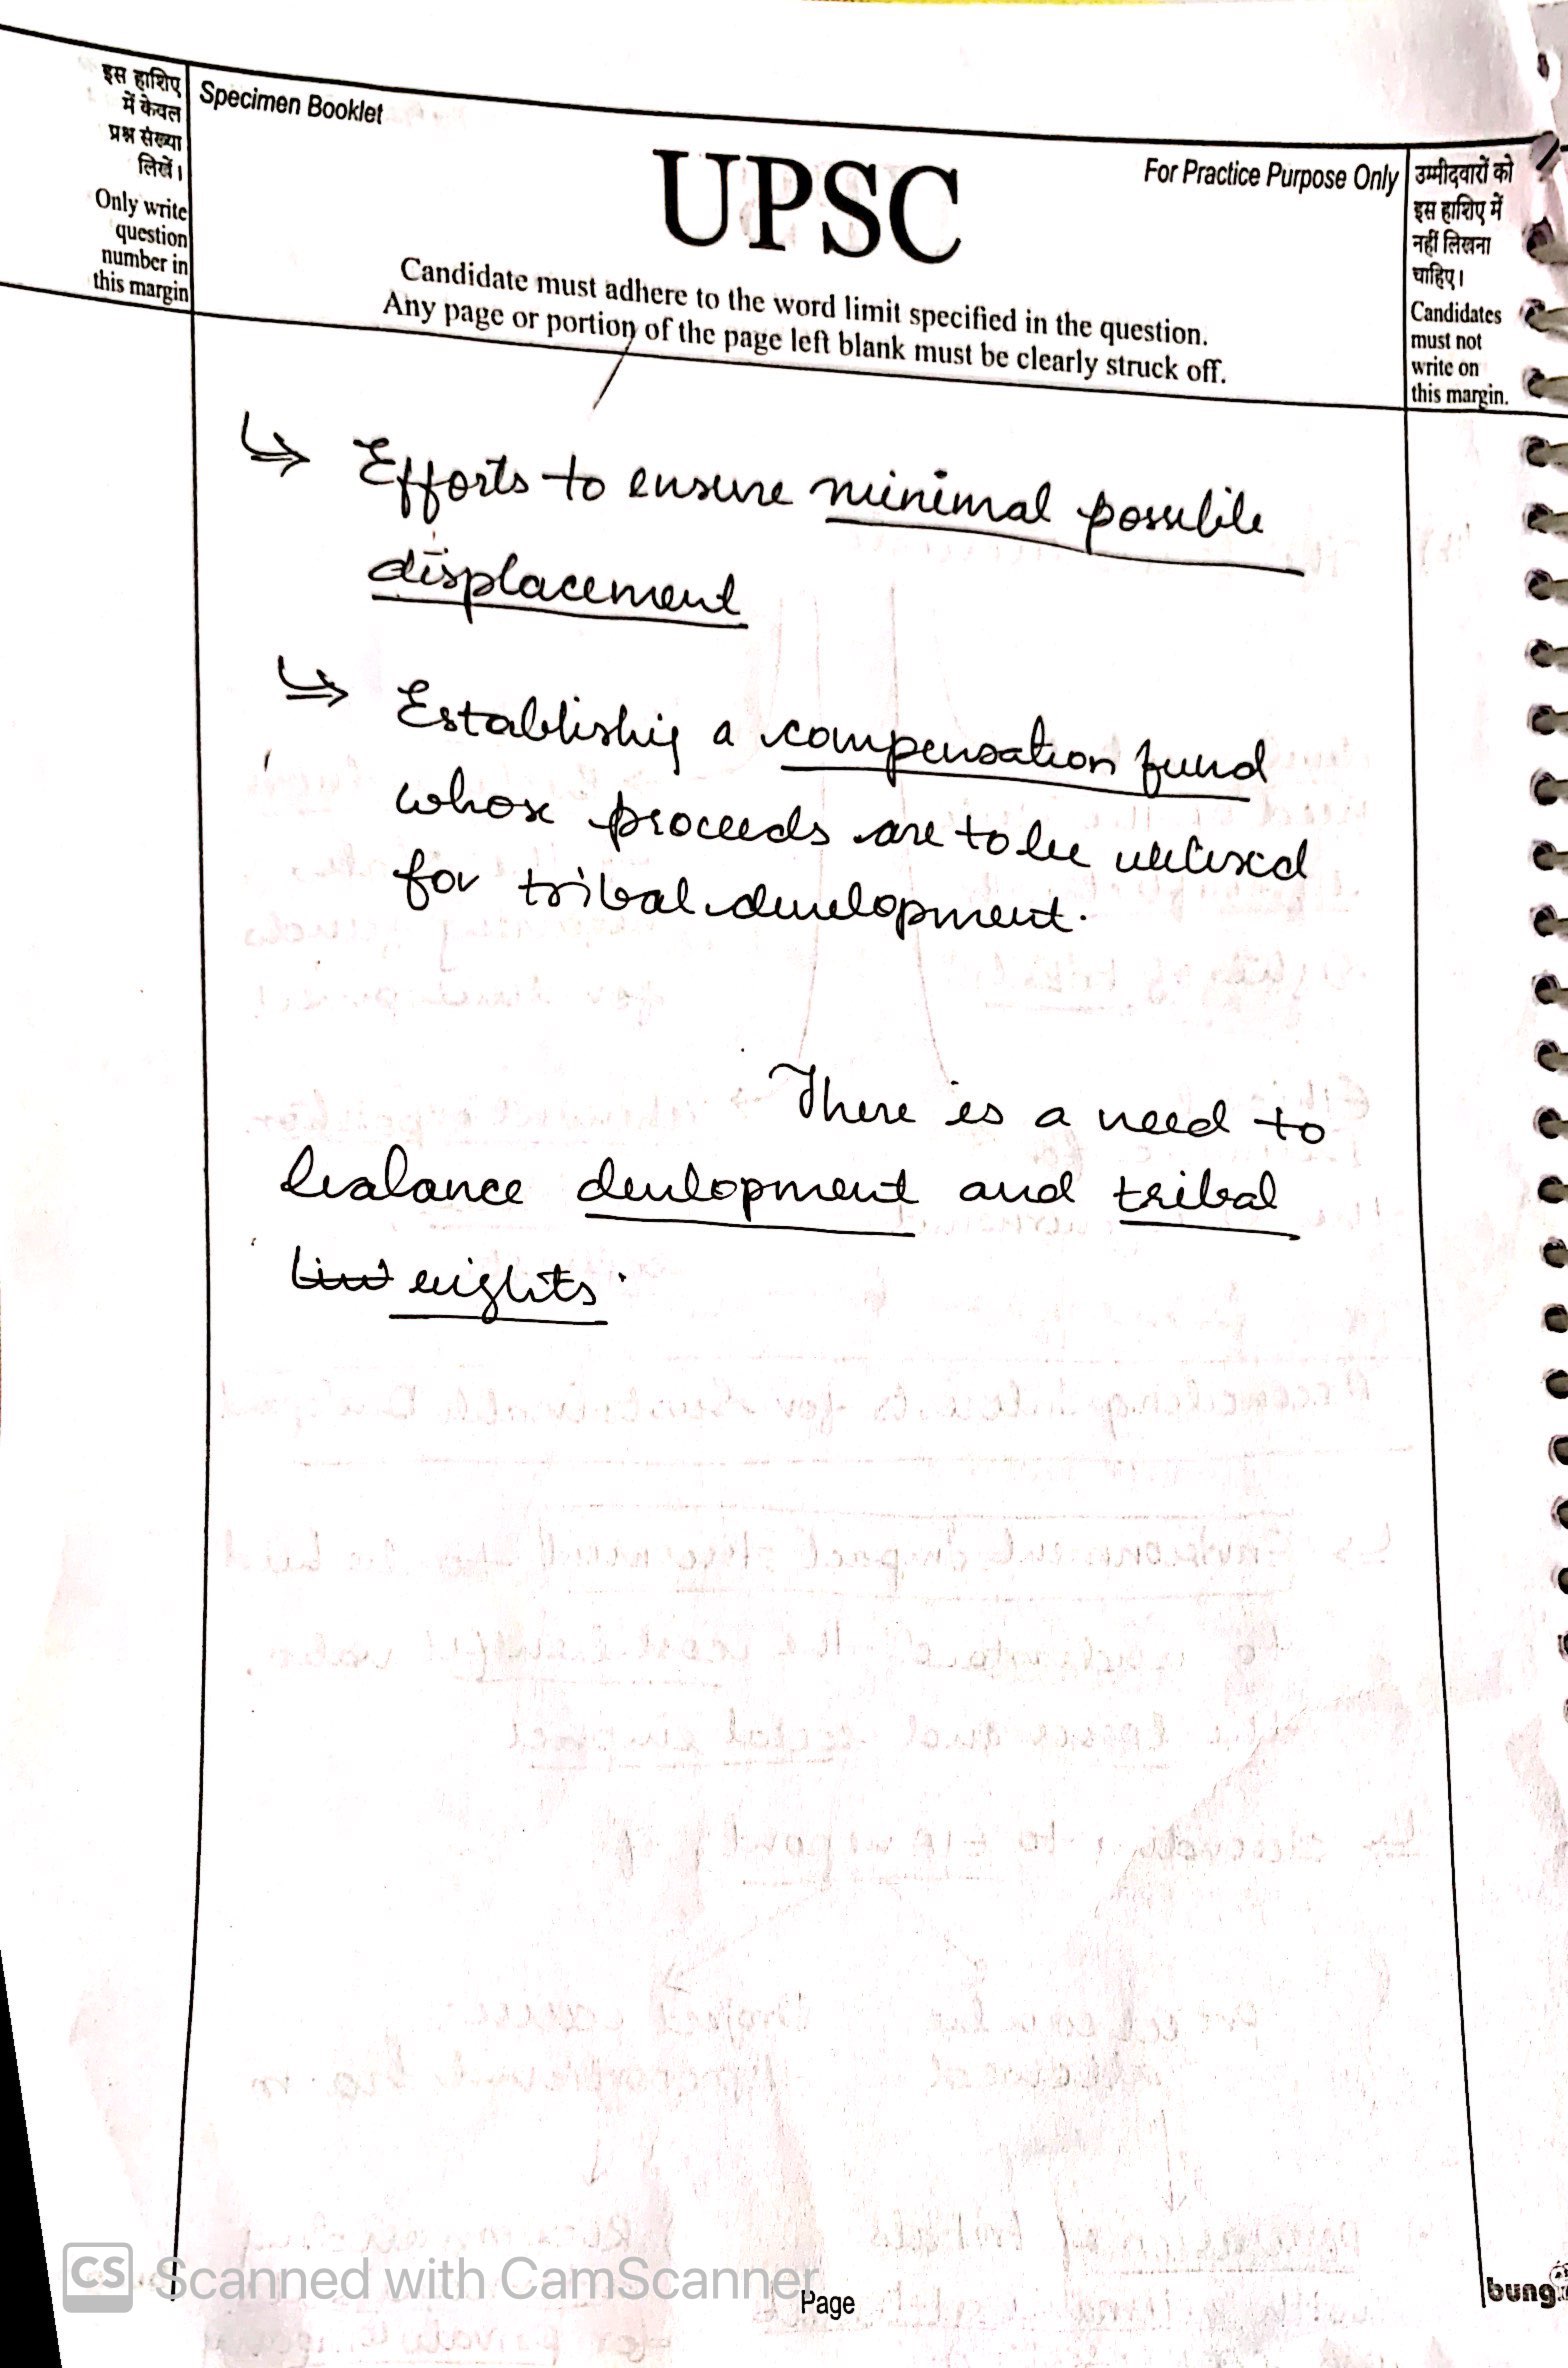 इस हाशिए
में केवल
प्रश्न संख्या
लिखें।
Only write
question
number in
this margin
Specimen Booklet
UPSC
For Practice Purpose Only
Candidate must adhere to the word limit specified in the question.
Any page or portion of the page left blank must be clearly struck off.
उम्मीदवारों को
इस हाशिए में
नहीं लिखना
चाहिए।
Candidates
must not
write on
this margin.
↳ Efforts to ensure minimal possible
displacement
↳ Establishig a compensation fund
whose proceeds are to be utilised
for tribal development.
There is a need to
balance development and tribal
rights.
CS Scanned with CamScanner
Page